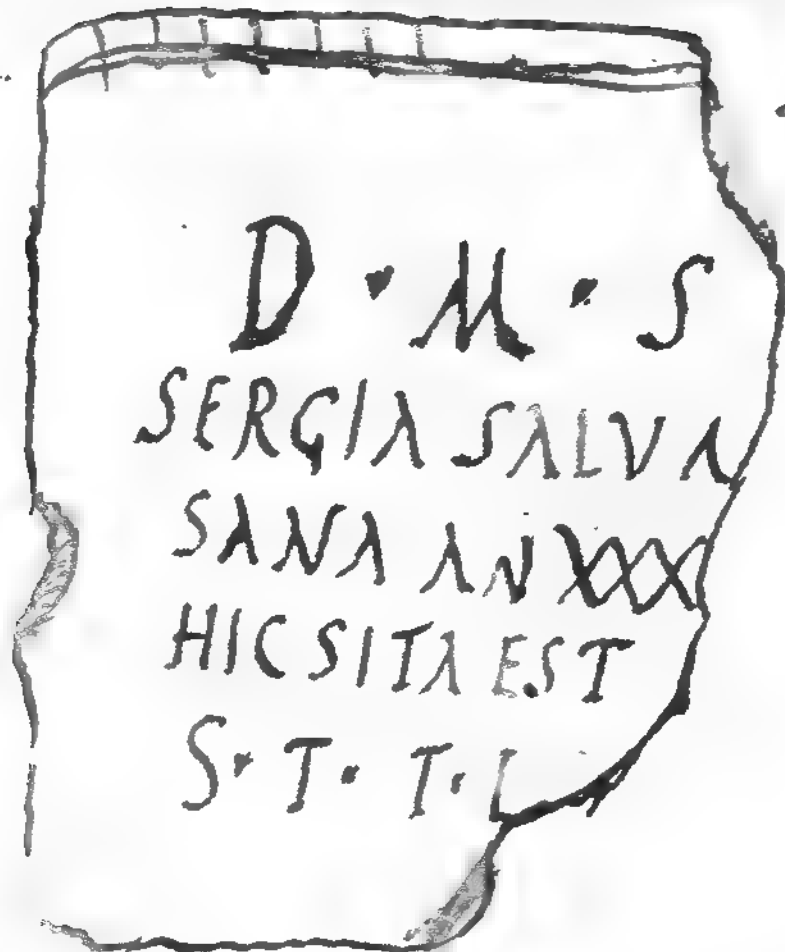 D · M · S
SERGIA SALVA
SANA AN XXX
HIC SITA EST
S · T · T · L